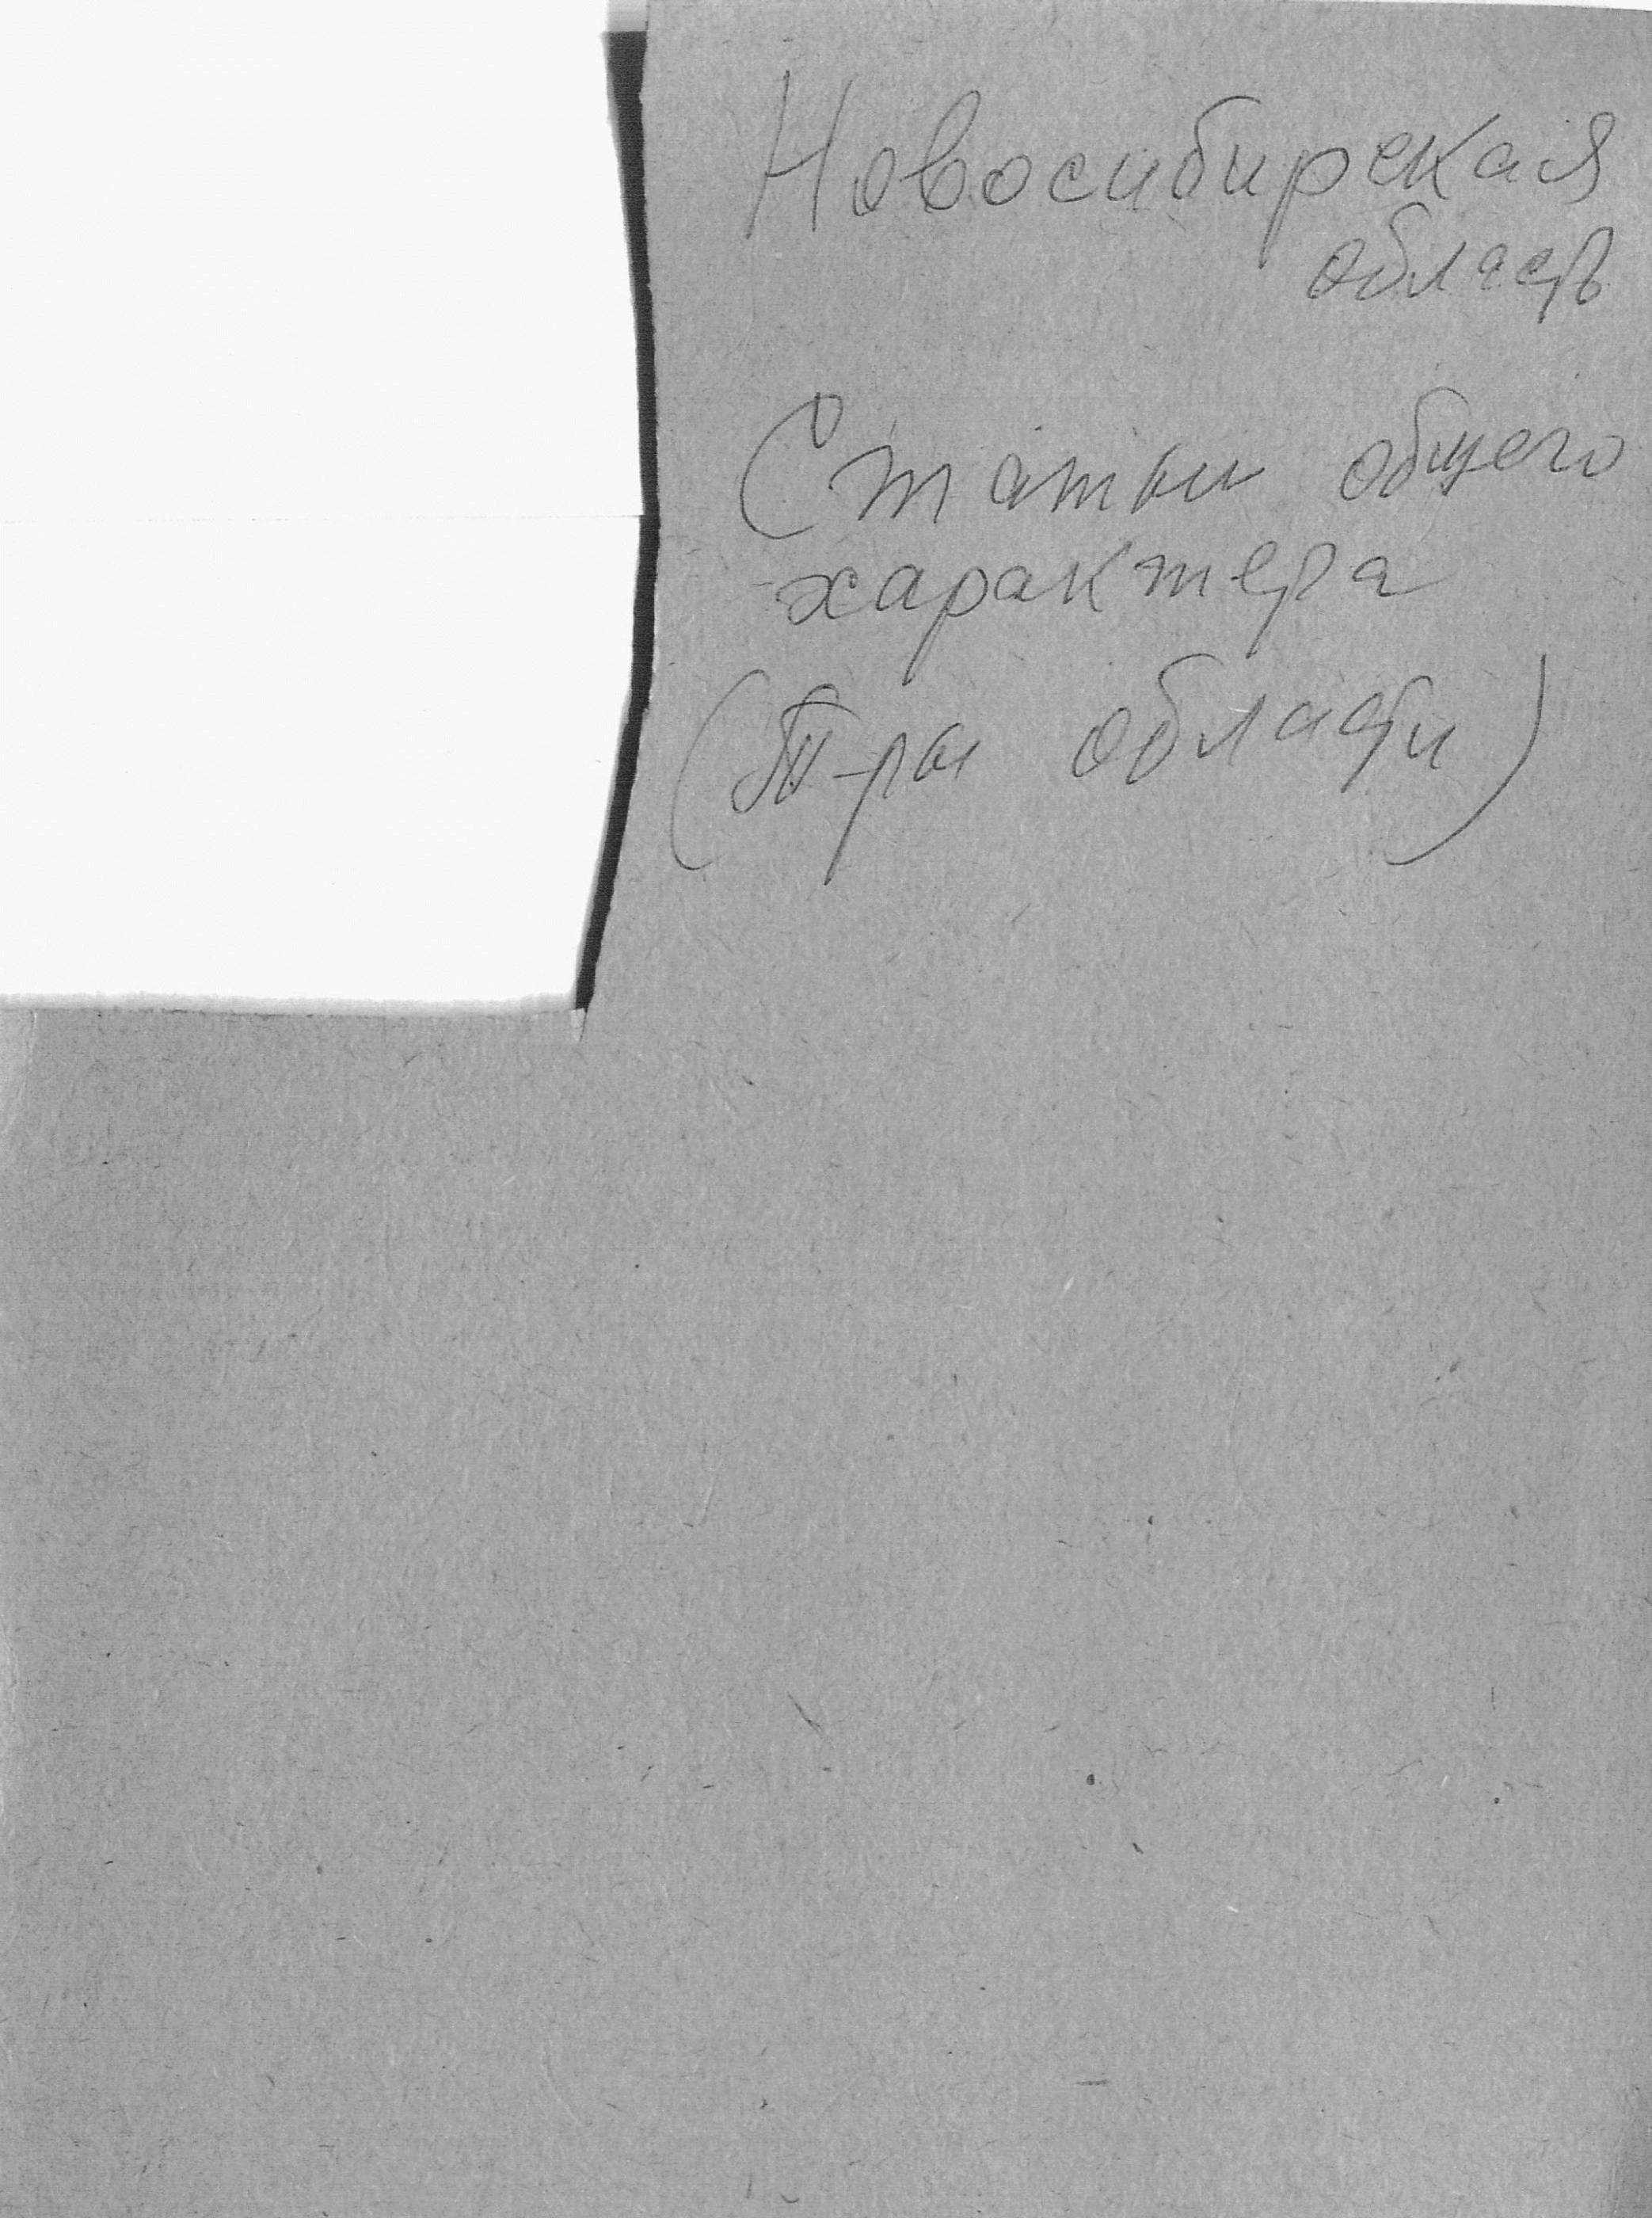 Новосибирская
область
Статьи общего
характера
(Т-ры области)